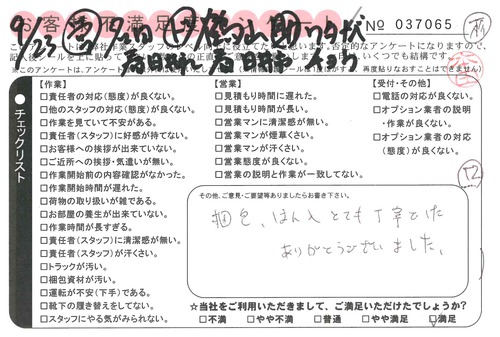 お客様不満足度アンケート
No 037065
9/23
春日部
記入後シールを上に貼って
いつでも結構です。
チェックリスト
【作業】
□責任者の対応(態度)が良くない。
□他のスタッフの対応(態度)が良くない。
□作業を見ていて不安がある。
□責任者(スタッフ)に好感が持てない。
□お客様への挨拶が出来ていない。
□ご近所への挨拶・気遣いが無い。
□作業開始前の内容確認がなかった。
□作業開始時間が遅れた。
□荷物の取り扱いが雑である。
□お部屋の養生が出来ていない。
□作業時間が長すぎる。
□責任者(スタッフ)に清潔感が無い。
□責任者(スタッフ)が汗くさい。
□トラックが汚い。
□梱包資材が汚い。
□運転が不安(下手)である。
□靴下の履き替えをしてない。
□スタッフにやる気がみられない。
【営業】
□見積もり時間に遅れた。
□見積もり時間が長い。
□営業マンに清潔感が無い。
□営業マンが煙草くさい。
□営業マンが汗くさい。
□営業態度が良くない。
□営業の説明と作業が一致してない。
【受付・その他】
□電話の対応が良くない。
□オプション業者の説明
・作業が良くない。
□オプション業者の対応
(態度)が良くない。
その他、ご意見・ご要望等ありましたらお書き下さい。
梱包、はん入とても丁寧でした
ありがとうございました。
☆当社をご利用いただきまして、ご満足いただけたでしょうか?
□不満 □やや不満 □普通 □やや満足 □満足